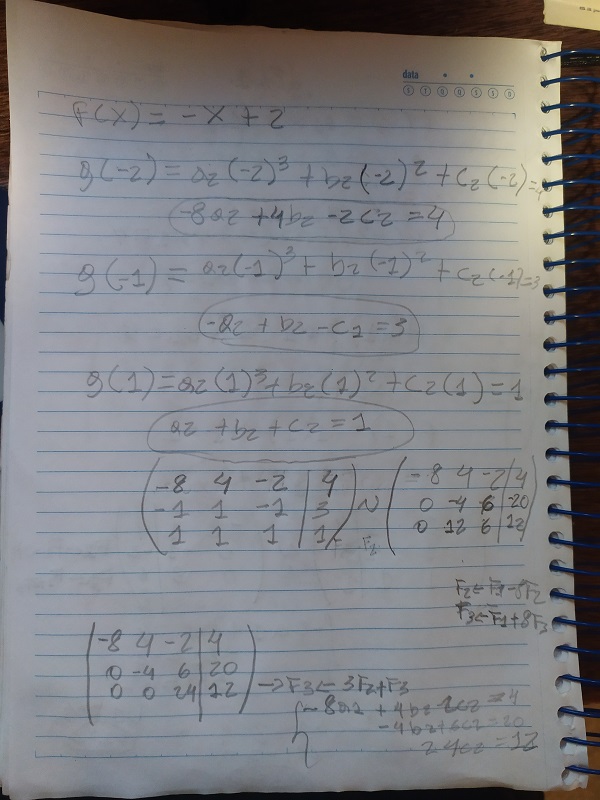 data
F(x) = -x + 2
g(-2) = a₂(-2)³ + b₂(-2)² + c₂(-2)=4
-8a₂ + 4b₂ - 2c₂ = 4
g(-1) = a₂(-1)³ + b₂(-1)² + c₂(-1)=3
-a₂ + b₂ - c₁ = 3
g(1) = a₂(1)³ + b₂(1)² + c₂(1) = 1
a₂ + b₂ + c₂ = 1
-8 4 -2 | 4 ~ -8 4 -2 | 4
-1 1 -1 | 3 0 -4 6 | -20
1 1 1 | 1 0 12 6 | 12
F₂ ← F₁ - 8F₂
F₃ ← F₁ + 8F₃
-8 4 -2 | 4
0 -4 6 | 20
0 0 24 | 12 → F₃ ← 3F₂ + F₃
-8a₂ + 4b₂ - 2c₂ = 4
-4b₂ + 6c₂ = 20
24c₂ = 12